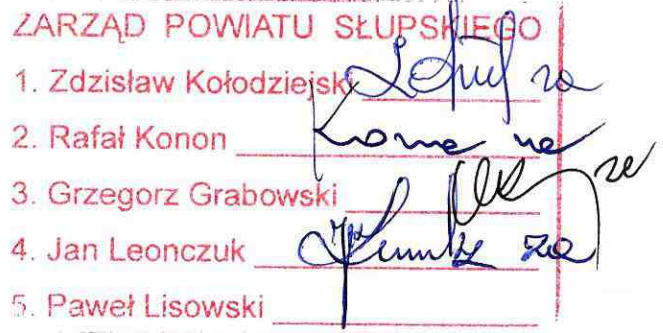 ZARZĄD POWIATU SŁUPSKIEGO
1. Zdzisław Kołodziejski za
2. Rafał Konon
3. Grzegorz Grabowski
4. Jan Leonczuk za
5. Paweł Lisowski